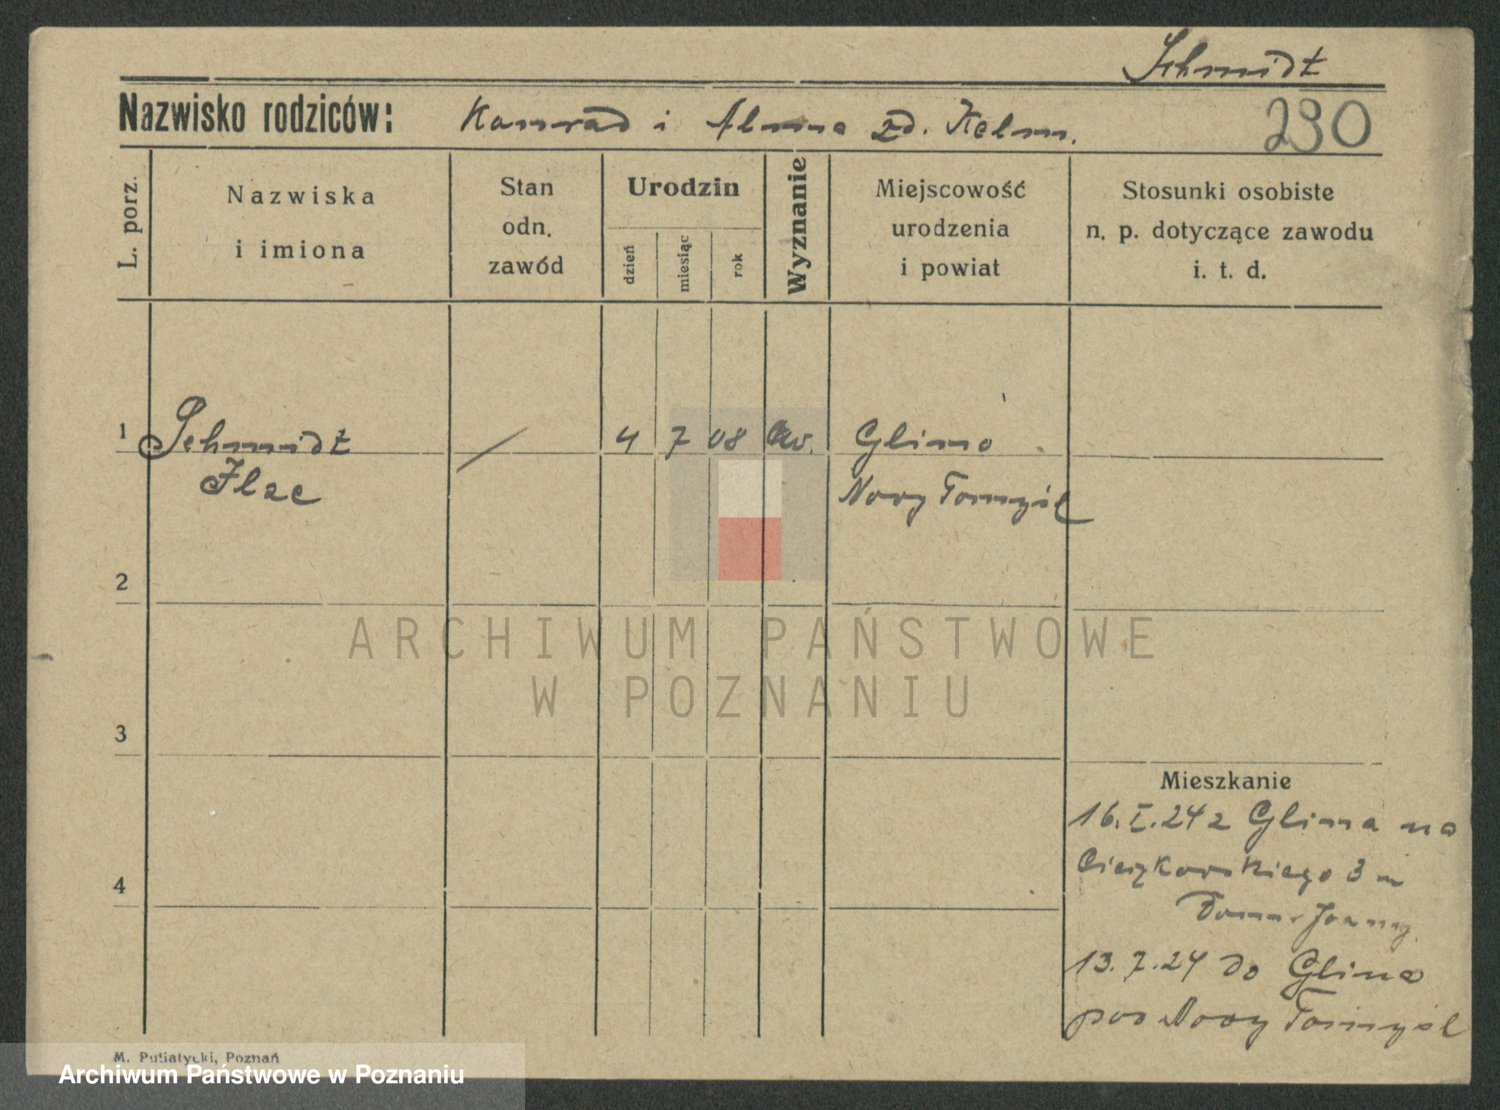 Schmidt
Nazwisko rodziców: Konrad i Alma zd. Kelm.
230
L. porz.
Nazwiska
i imiona
Stan
odn.
zawód
Urodzin
dzień
miesiąc
rok
Wyznanie
Miejscowość
urodzenia
i powiat
Stosunki osobiste
n. p. dotyczące zawodu
i. t. d.
1 Schmidt / 4 7 08 ew. Glino
Ilse Nowy Tomyśl
2
ARCHIWUM PAŃSTWOWE
W POZNANIU
3
Mieszkanie
16.I.24 z Glina na
Cieszkowskiego 3 m
4
13.7.24 do Glina
pow Nowy Tomyśl
M. Putiatycki, Poznań
Archiwum Państwowe w Poznaniu